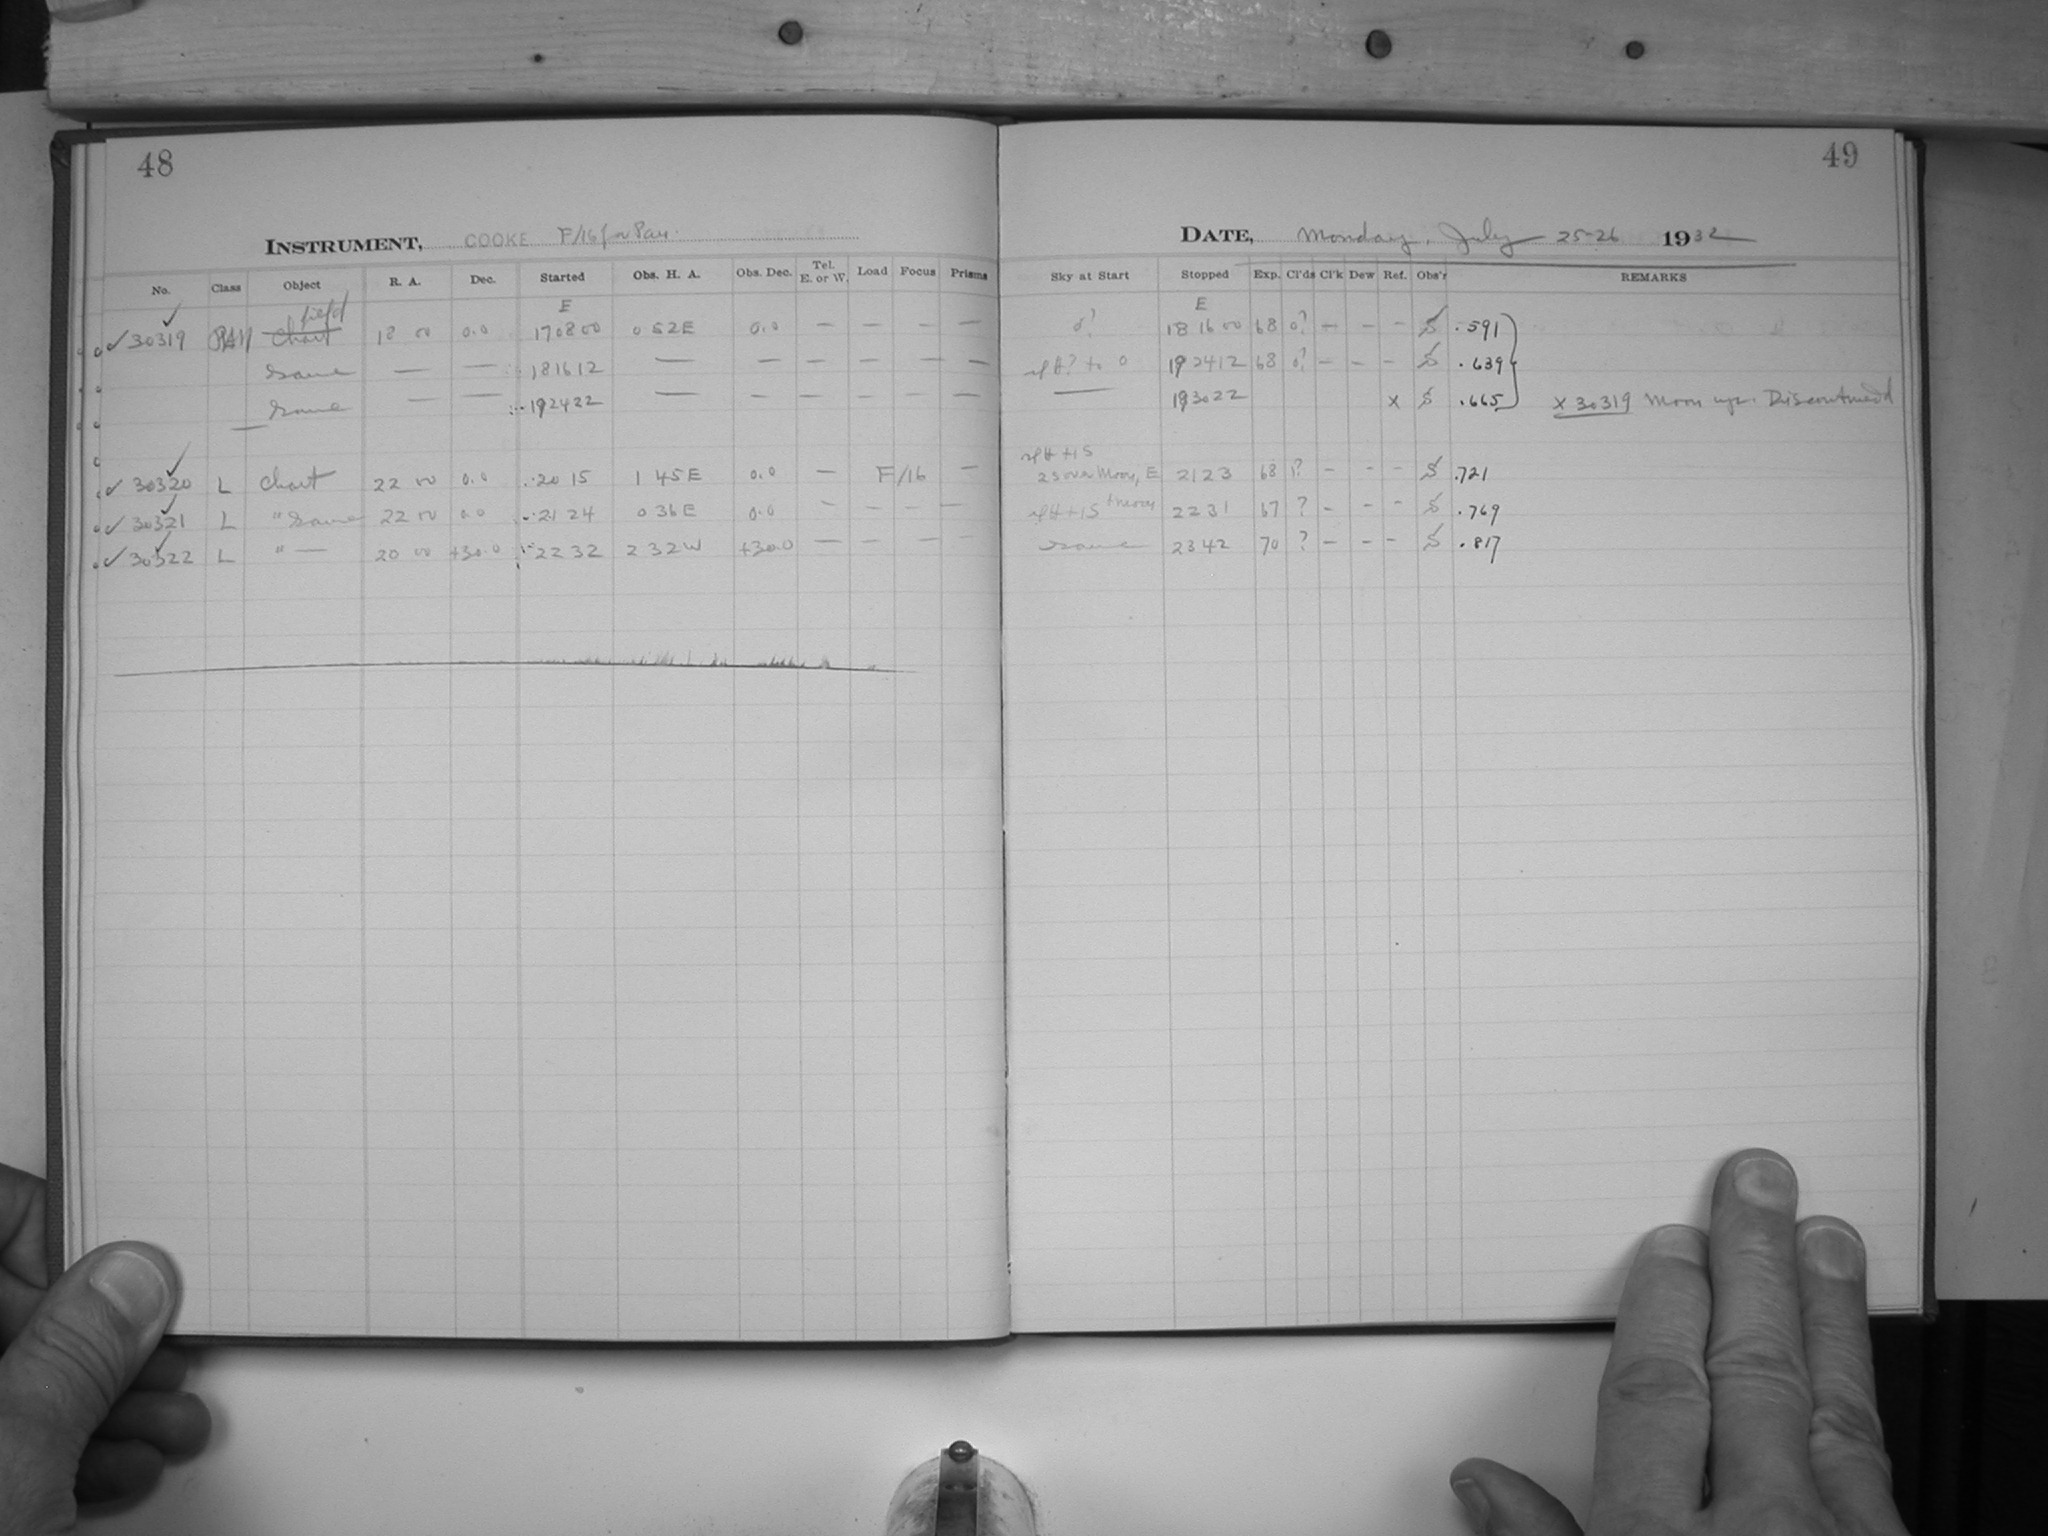 48
INSTRUMENT, COOKE F/16 for Pan.
No. Class Object R. A. Dec. Started Obs. H. A. Obs. Dec. Tel. E. or W. Load Focus Prisms
E
field
✓ 30319 PAN Chart 18 00 0.0 17 08 00 0 52 E 0.0 — — — —
Same — — 18 16 12 — — — — — —
Same — — 19 24 22 — — — — — —
✓ 30320 L Chart 22 00 0.0 20 15 1 45 E 0.0 — F/16 —
✓ 30321 L " Same 22 00 0.0 21 24 0 36 E 0.0 — — — —
✓ 30322 L " — 20 00 +30.0 22 32 2 32 W +30.0 — — — —
49
DATE, Monday, July 25-26 1932
Sky at Start Stopped Exp. Cl'ds Cl'k Dew Ref. Obs'r REMARKS
E
0? 18 16 00 68 0? — — — S .591
? to 0 19 24 12 68 0? — — — S .639
— 19 30 22 x S .665 x 30319 Moon up. Discontinued
+15
25 over Moon, E 21 23 68 1? — — — S .721
+15 + moon 22 31 67 ? — — — S .769
Same 23 42 70 ? — — — S .817